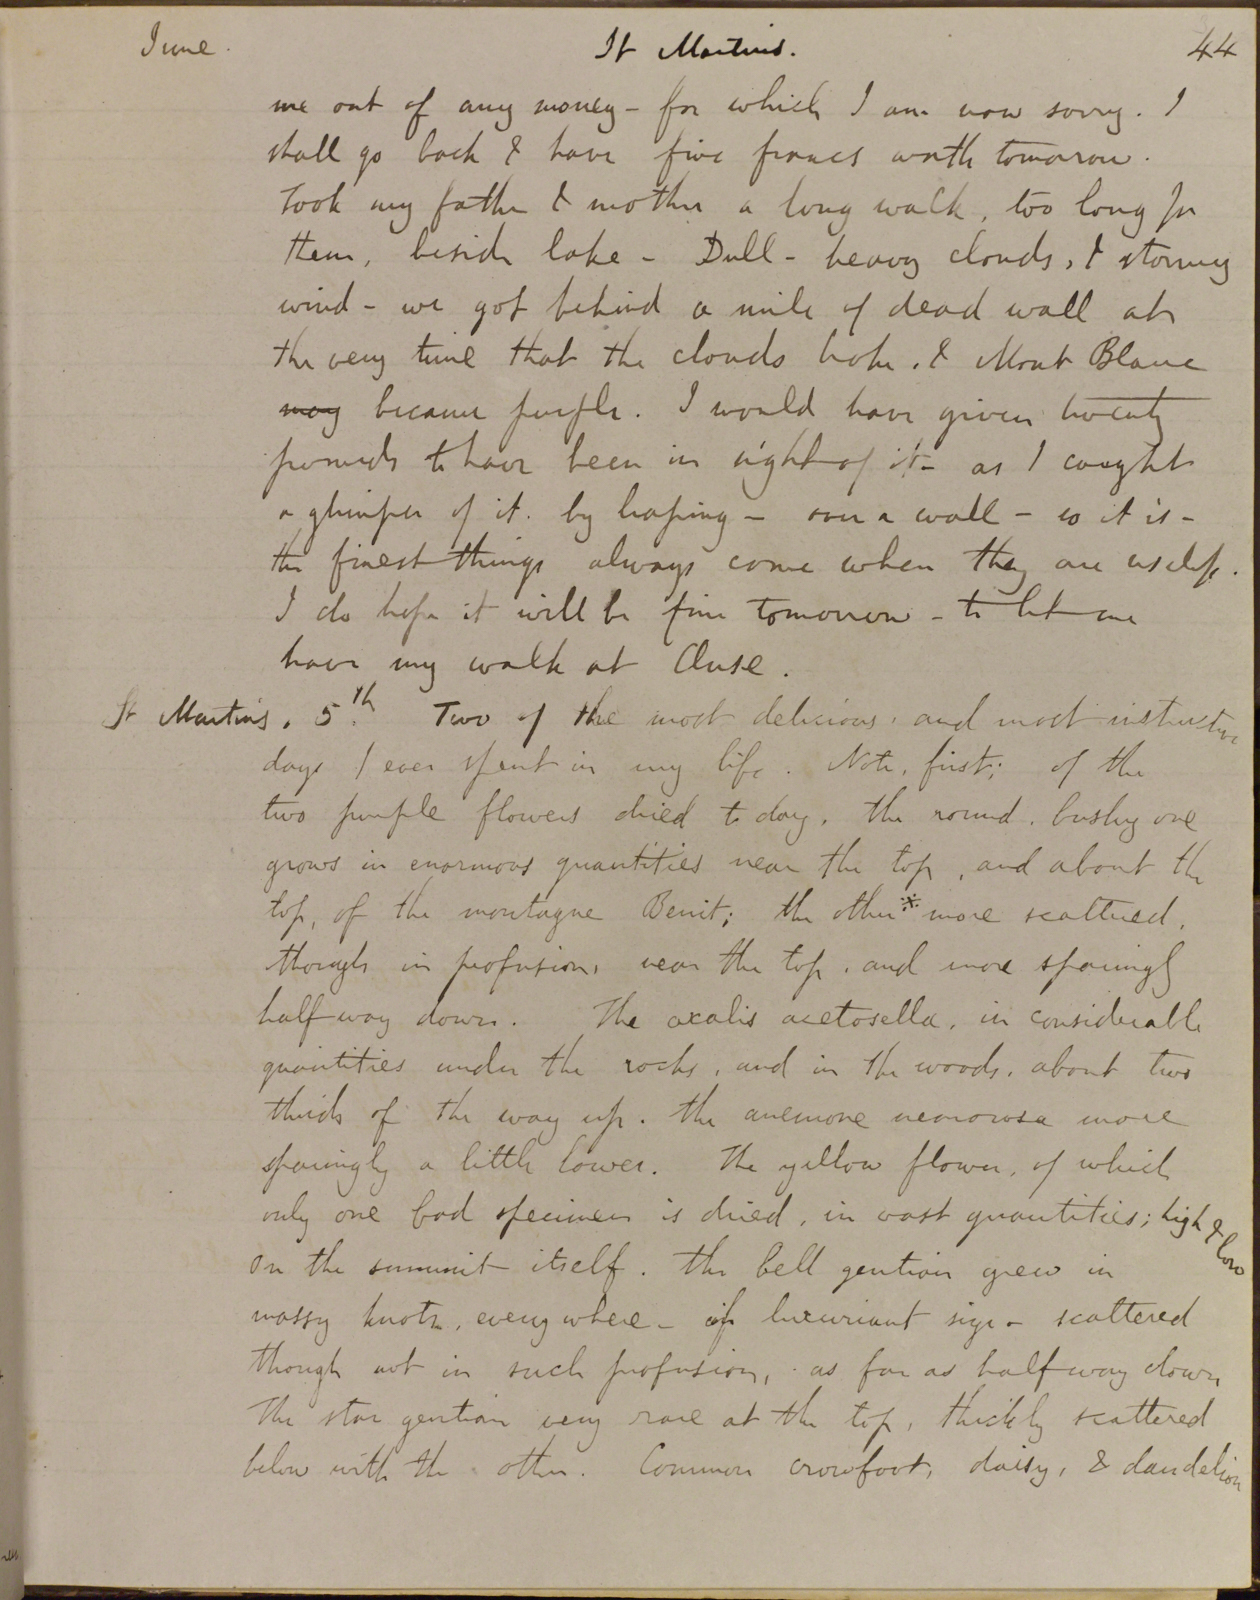 June. St Martins. 44
me out of any money - for which I am now sorry. I
shall go back & have five francs worth tomorrow.
Took my father & mother a long walk, too long for
them, beside lake - Dull - heavy clouds, & stormy
wind - we got behind a mile of dead wall at
the very time that the clouds broke, & Mont Blanc
may became purple. I would have given twenty
pounds to have been in sight of it - as I caught
a glimpse of it. by leaping - over a wall - so it is -
the finest things always come when they are useless.
I do hope it will be fine tomorrow - to let me
have my walk at Cluse.
St Martins. 5th. Two of the most delicious, and most instructive
days I ever spent in my life. Note, first; of the
two purple flowers dried to day, the round, bushy one
grows in enormous quantities near the top, and about the
top, of the montagne Benit; the other* more scattered,
though in profusion, near the top, and more sparingly
half way down. The oxalis acetosella, in considerable
quantities under the rocks, and in the woods, about two
thirds of the way up. The anemone nemorosa more
sparingly a little lower. The yellow flower, of which
only one bad specimen is dried, in vast quantities; high & low
on the summit itself. The bell gentian grew in
mossy knots, every where - of luxuriant size - scattered
though not in such profusion, as far as half way down
The star gentian very rare at the top, thickly scattered
below with the other. Common crowfoot, daisy, & dandelion